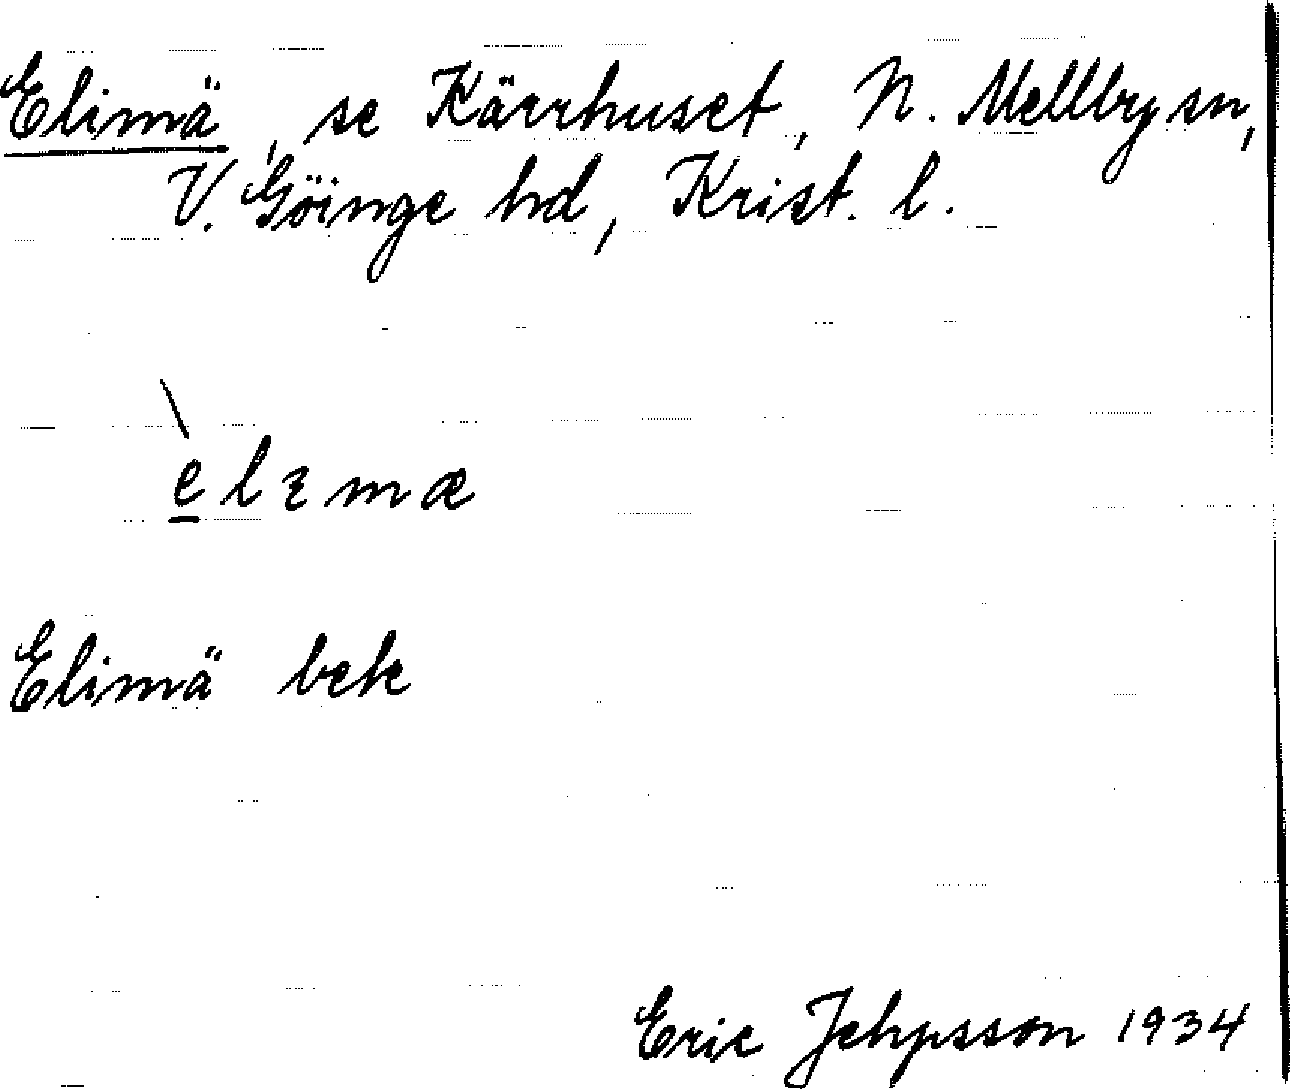 Elimä, se Kärrhuset, N. Mellby sn,
V. Göinge hd, Krist. l.
è̱lɩmæ
Elimä bek
Eric Jepsson 1934